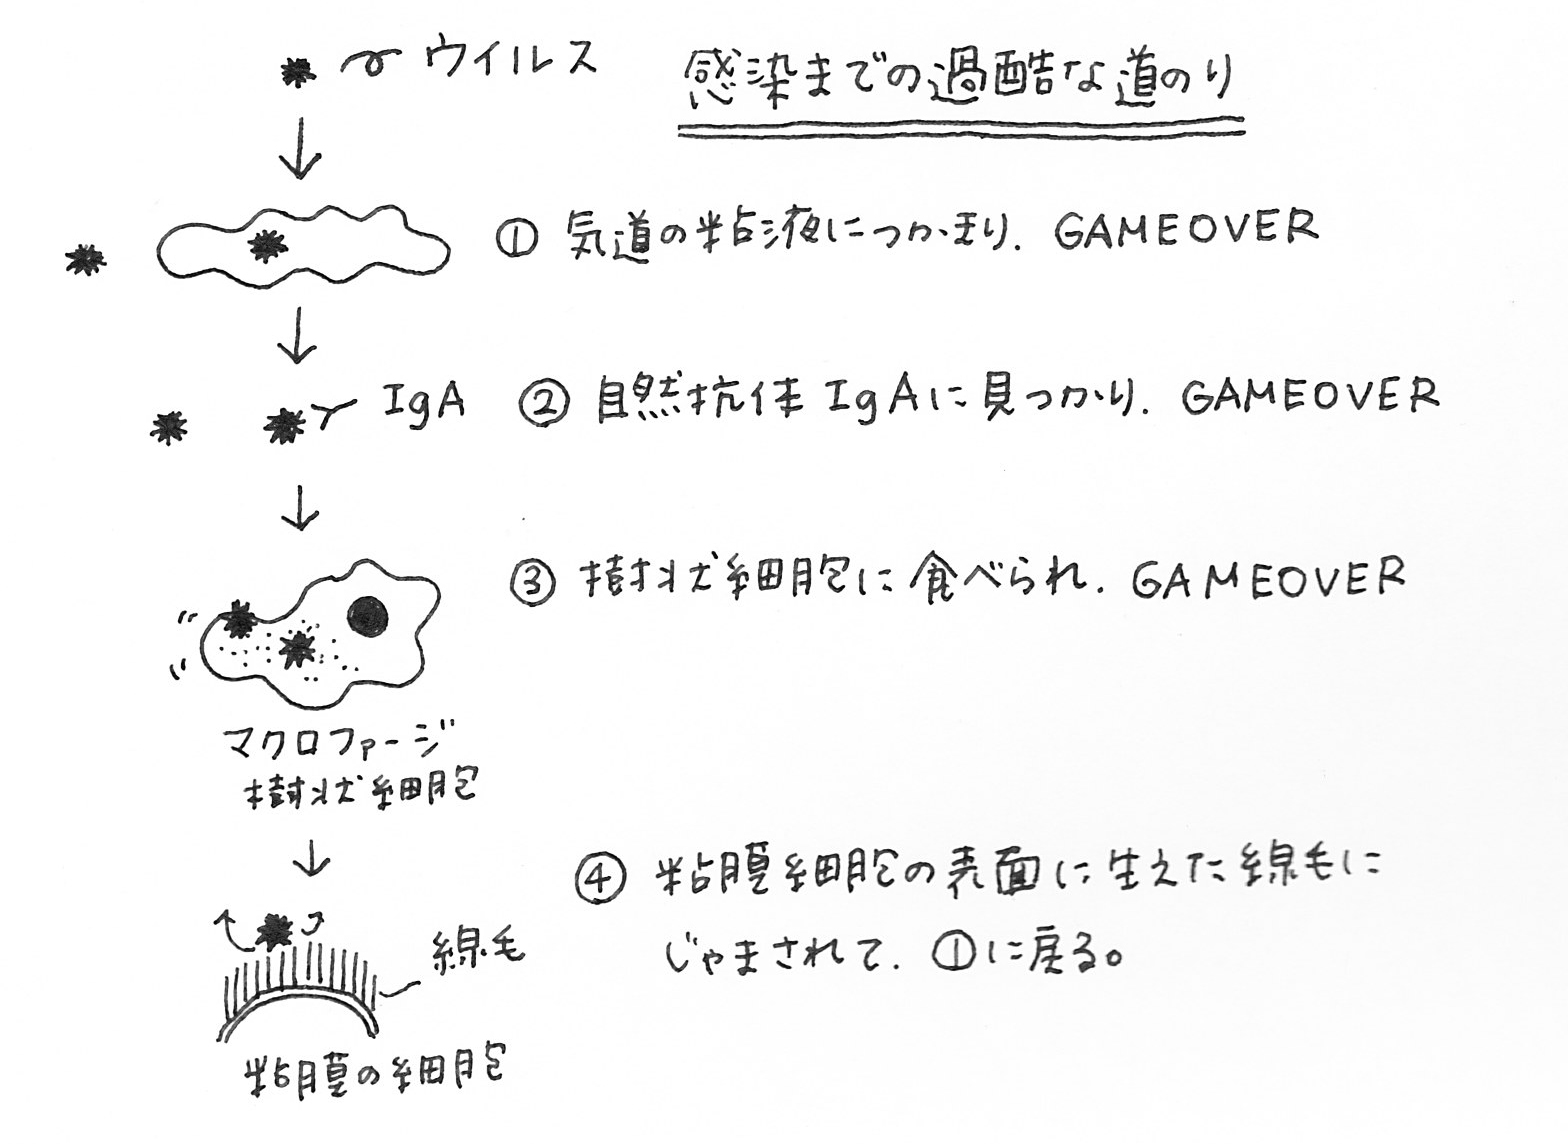 ウイルス
感染までの過酷な道のり
① 気道の粘液につかまり. GAMEOVER
IgA
② 自然抗体 IgAに見つかり. GAMEOVER
③ 樹状細胞に食べられ. GAMEOVER
マクロファージ
樹状細胞
④ 粘膜細胞の表面に生えた線毛に
じゃまされて. ①に戻る。
線毛
粘膜の細胞